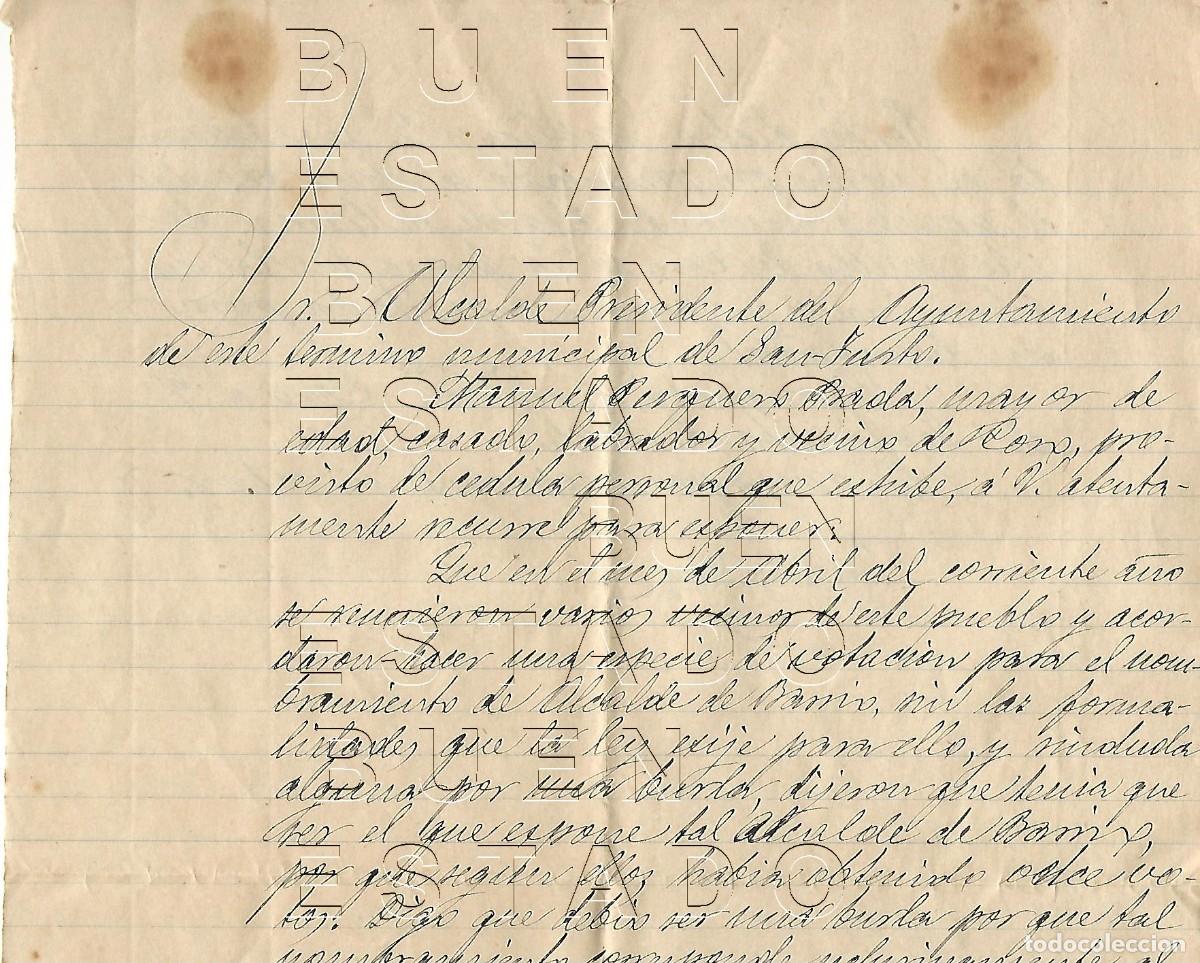 BUEN
ESTADO
BUEN
ESTADO
BUEN
ESTADO
BUEN
ESTADO
Sr. Alcalde Presidente del Ayuntamiento
de este termino municipal de San-Justo.
Manuel Prada, mayor de
edad, casado, labrador y vecino de pro-
visto de cedula personal que exhibe, á V. atenta-
mente recurre para esponer:
Que en el mes de Abril del corriente año
se reunieron varios vecinos de este pueblo y acor-
daron hacer una especie de votacion para el nom-
bramiento de Alcalde de Barrio, sin las forma-
lidades que la ley exije para ello, y sinduda
alguna por una burla, dijeron que tenia que
ser el que espone tal Alcalde de Barrio,
por que segun ellos habia obtenido once vo-
tos. Digo que debio ser una burla por que tal
nombramiento corresponde
todocoleccion